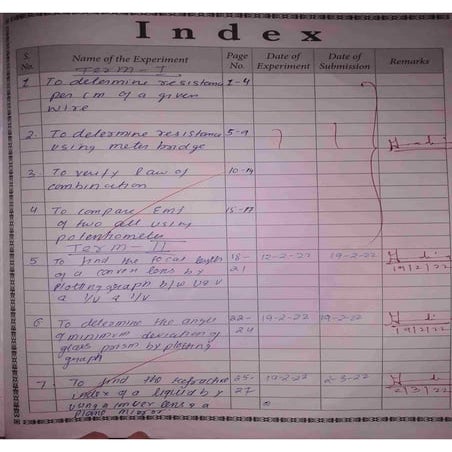 Index
S. No. Name of the Experiment Page No. Date of Experiment Date of Submission Remarks
Term-I
1 To determine resistance 1-4
per cm of a given
wire
2. To determine resistance 5-9
using meter bridge
3. To verify law of 10-14
combination
4 To compare Emf 15-17
of two cell using
potentiometer
Term-II
5 To find the focal length 18-21 12-2-22 19-2-22
of a convex lens by
plotting graph b/w u & v
a 1/u & 1/v 19/2/22
6 To determine the angle 22-24 19-2-22 19-2-22
of minimum deviation of
glass prism by plotting 19/2/22
graph
7. To find the refractive 25-27 19-2-22 2-3-22
index of a liquid by 2/3/22
using convex lens &
plane mirror